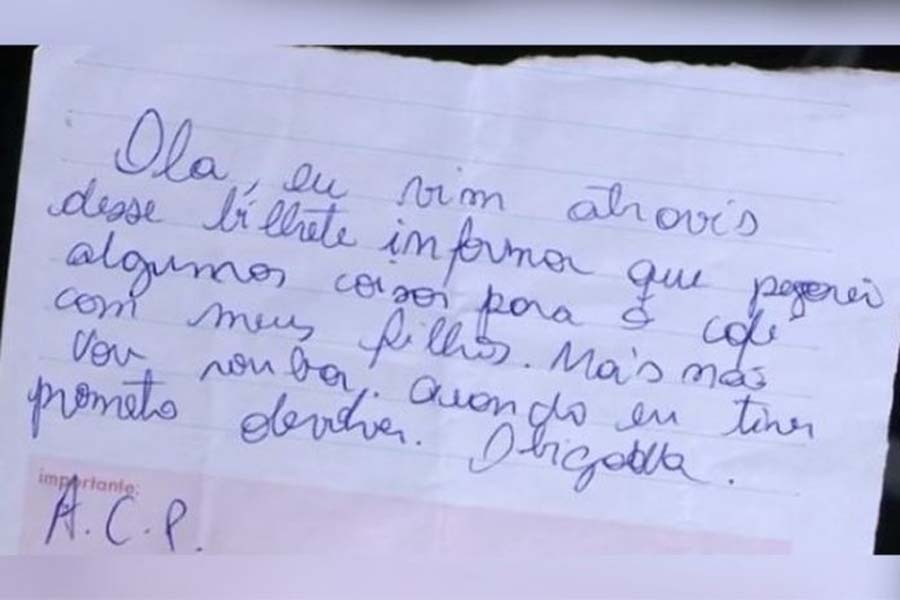 Ola, eu vim atravis
desse bilhete informar que pegarei
algumas coisas para o café
com meus filhos. Mais não
vou rouba. Quando eu tiver
prometo devolver. Obigadla.
importante:
A.C.P.